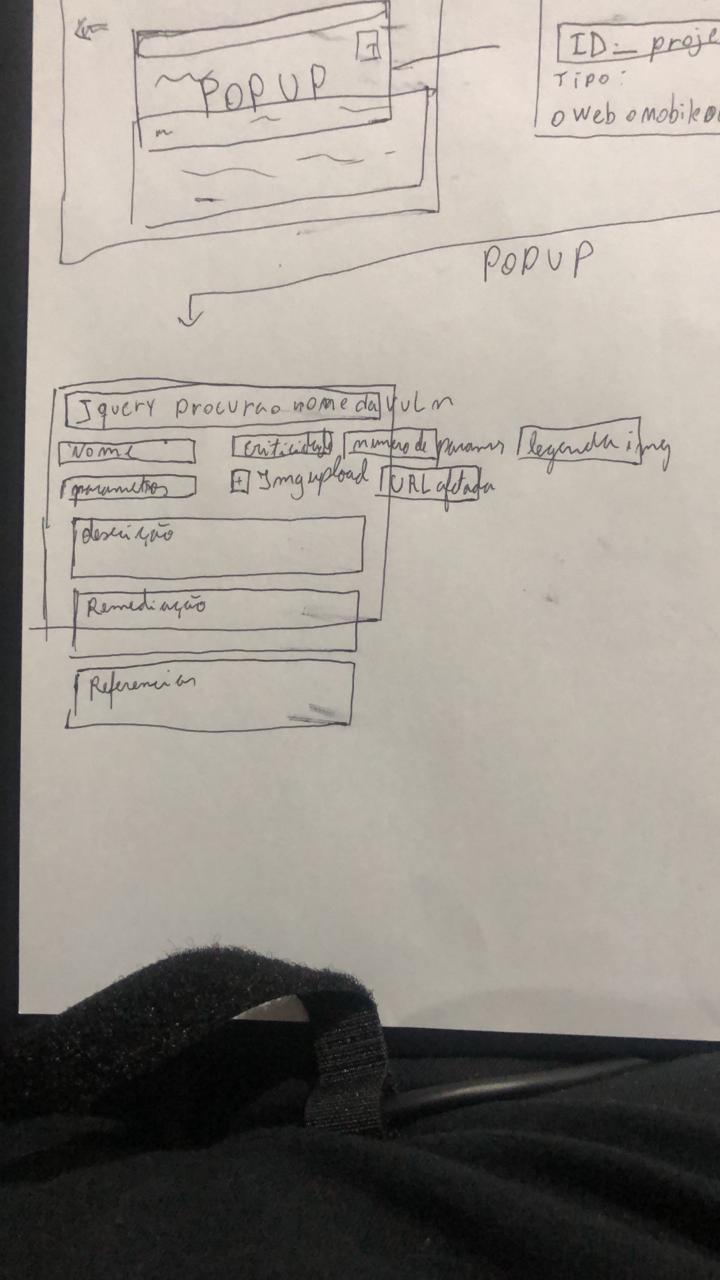 POPUP
ID: proje
Tipo:
o Web o mobile o
POPUP
Jquery procurao nome da vuln
Nome
criticidade
numero de params
legenda img
parametros
+ Img upload
URL afetada
descrição
Remediação
Referencias